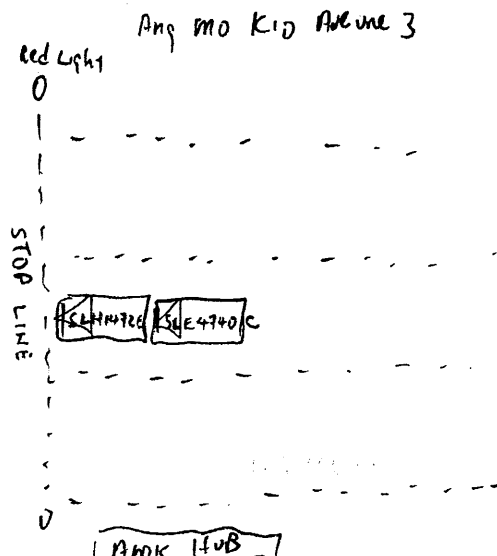 Ang mo Kio Avenue 3
Red Light
STOP LINE
SLE4740C
AMK HUB